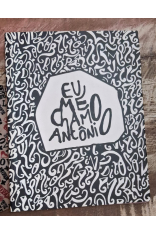 EU
ME
CHAMO
ANTÔNIO